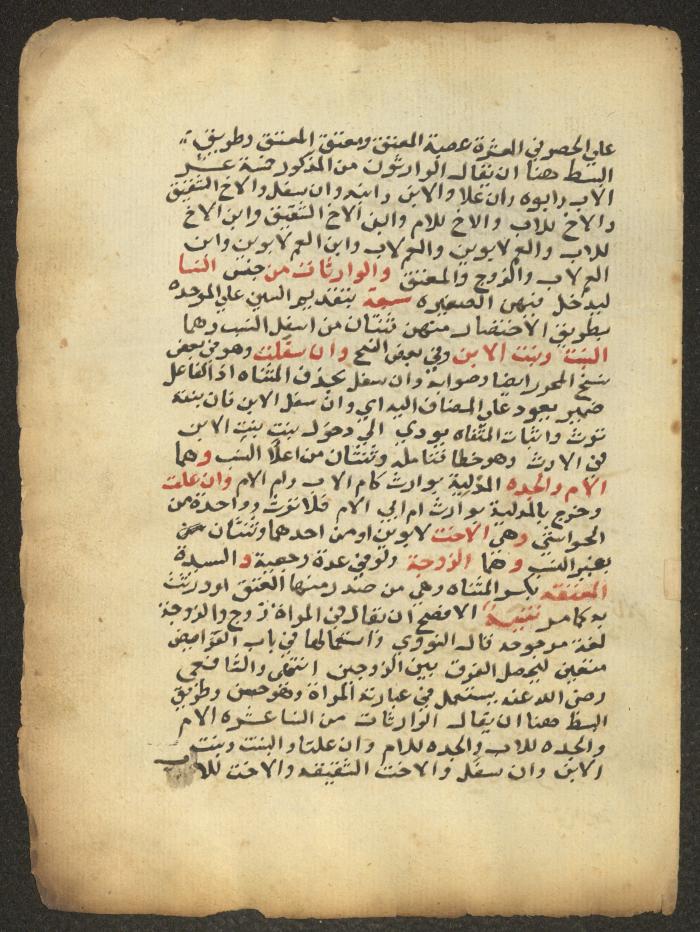 علي الحصر في العشرة عصبة المعتق ومعتق المعتق وطريق
البسط هنا ان يقال الوارثون من الذكور خمسة عشر
الاب وابوه وان علا والابن وابنه وان سفل والاخ الشقيق
والاخ للاب والاخ للام وابن الاخ الشقيق وابن الاخ
للاب والعم لابوين والعم لاب وابن العم لابوين وابن
العم لاب والزوج والمعتق والوارثات من جنس النسا
ليدخل فيهن الصغيره سبعة بتقديم السين علي الموحده
بطريق الاختصار منهن ثنتان من اسفل النسب وهما
البنت وبنت الابن وفي بعض النسخ وان سفلت وهو في بعض
نسخ المحرر ايضا وصوابه وان سفل بحذف المثناه اذ الفاعل
ضمير يعود علي المضاف اليه اي وان سفل الابن فان بنته
ترث واثبات المثناه يودي الي دخول بنت بنت الابن
في الارث وهو خطا فتامله وثنتان من اعلا النسب وهما
الام والجده المدلية بوارث كام الاب وام الام وان علت
وخرج بالمدلية بوارث ام ابي الام فلا ترث وواحدة من
الحواشي وهي الاخت لابوين او من احدهما وثنتان
بغير النسب وهما الزوجة ولو في عدة رجعية والسيدة
المعتقه بكسر المثناه وهي من صدر منها العتق او ورثت
به كما مر تنبيه الافصح ان يقال في المراة زوج والزوجة
لغة مرجوحة قال النووي واستعمالها في باب الفرايض
متعين ليحصل الفرق بين الزوجين انتهى والشافعي
رضي الله عنه يستعمل في عبارته المراة وهو حسن وطريق
البسط هنا ان يقال الوارثات من النسا عشره الام
والجده للاب والجده للام وان علتا والبنت وبنت
الابن وان سفل والاخت الشقيقه والاخت للاب